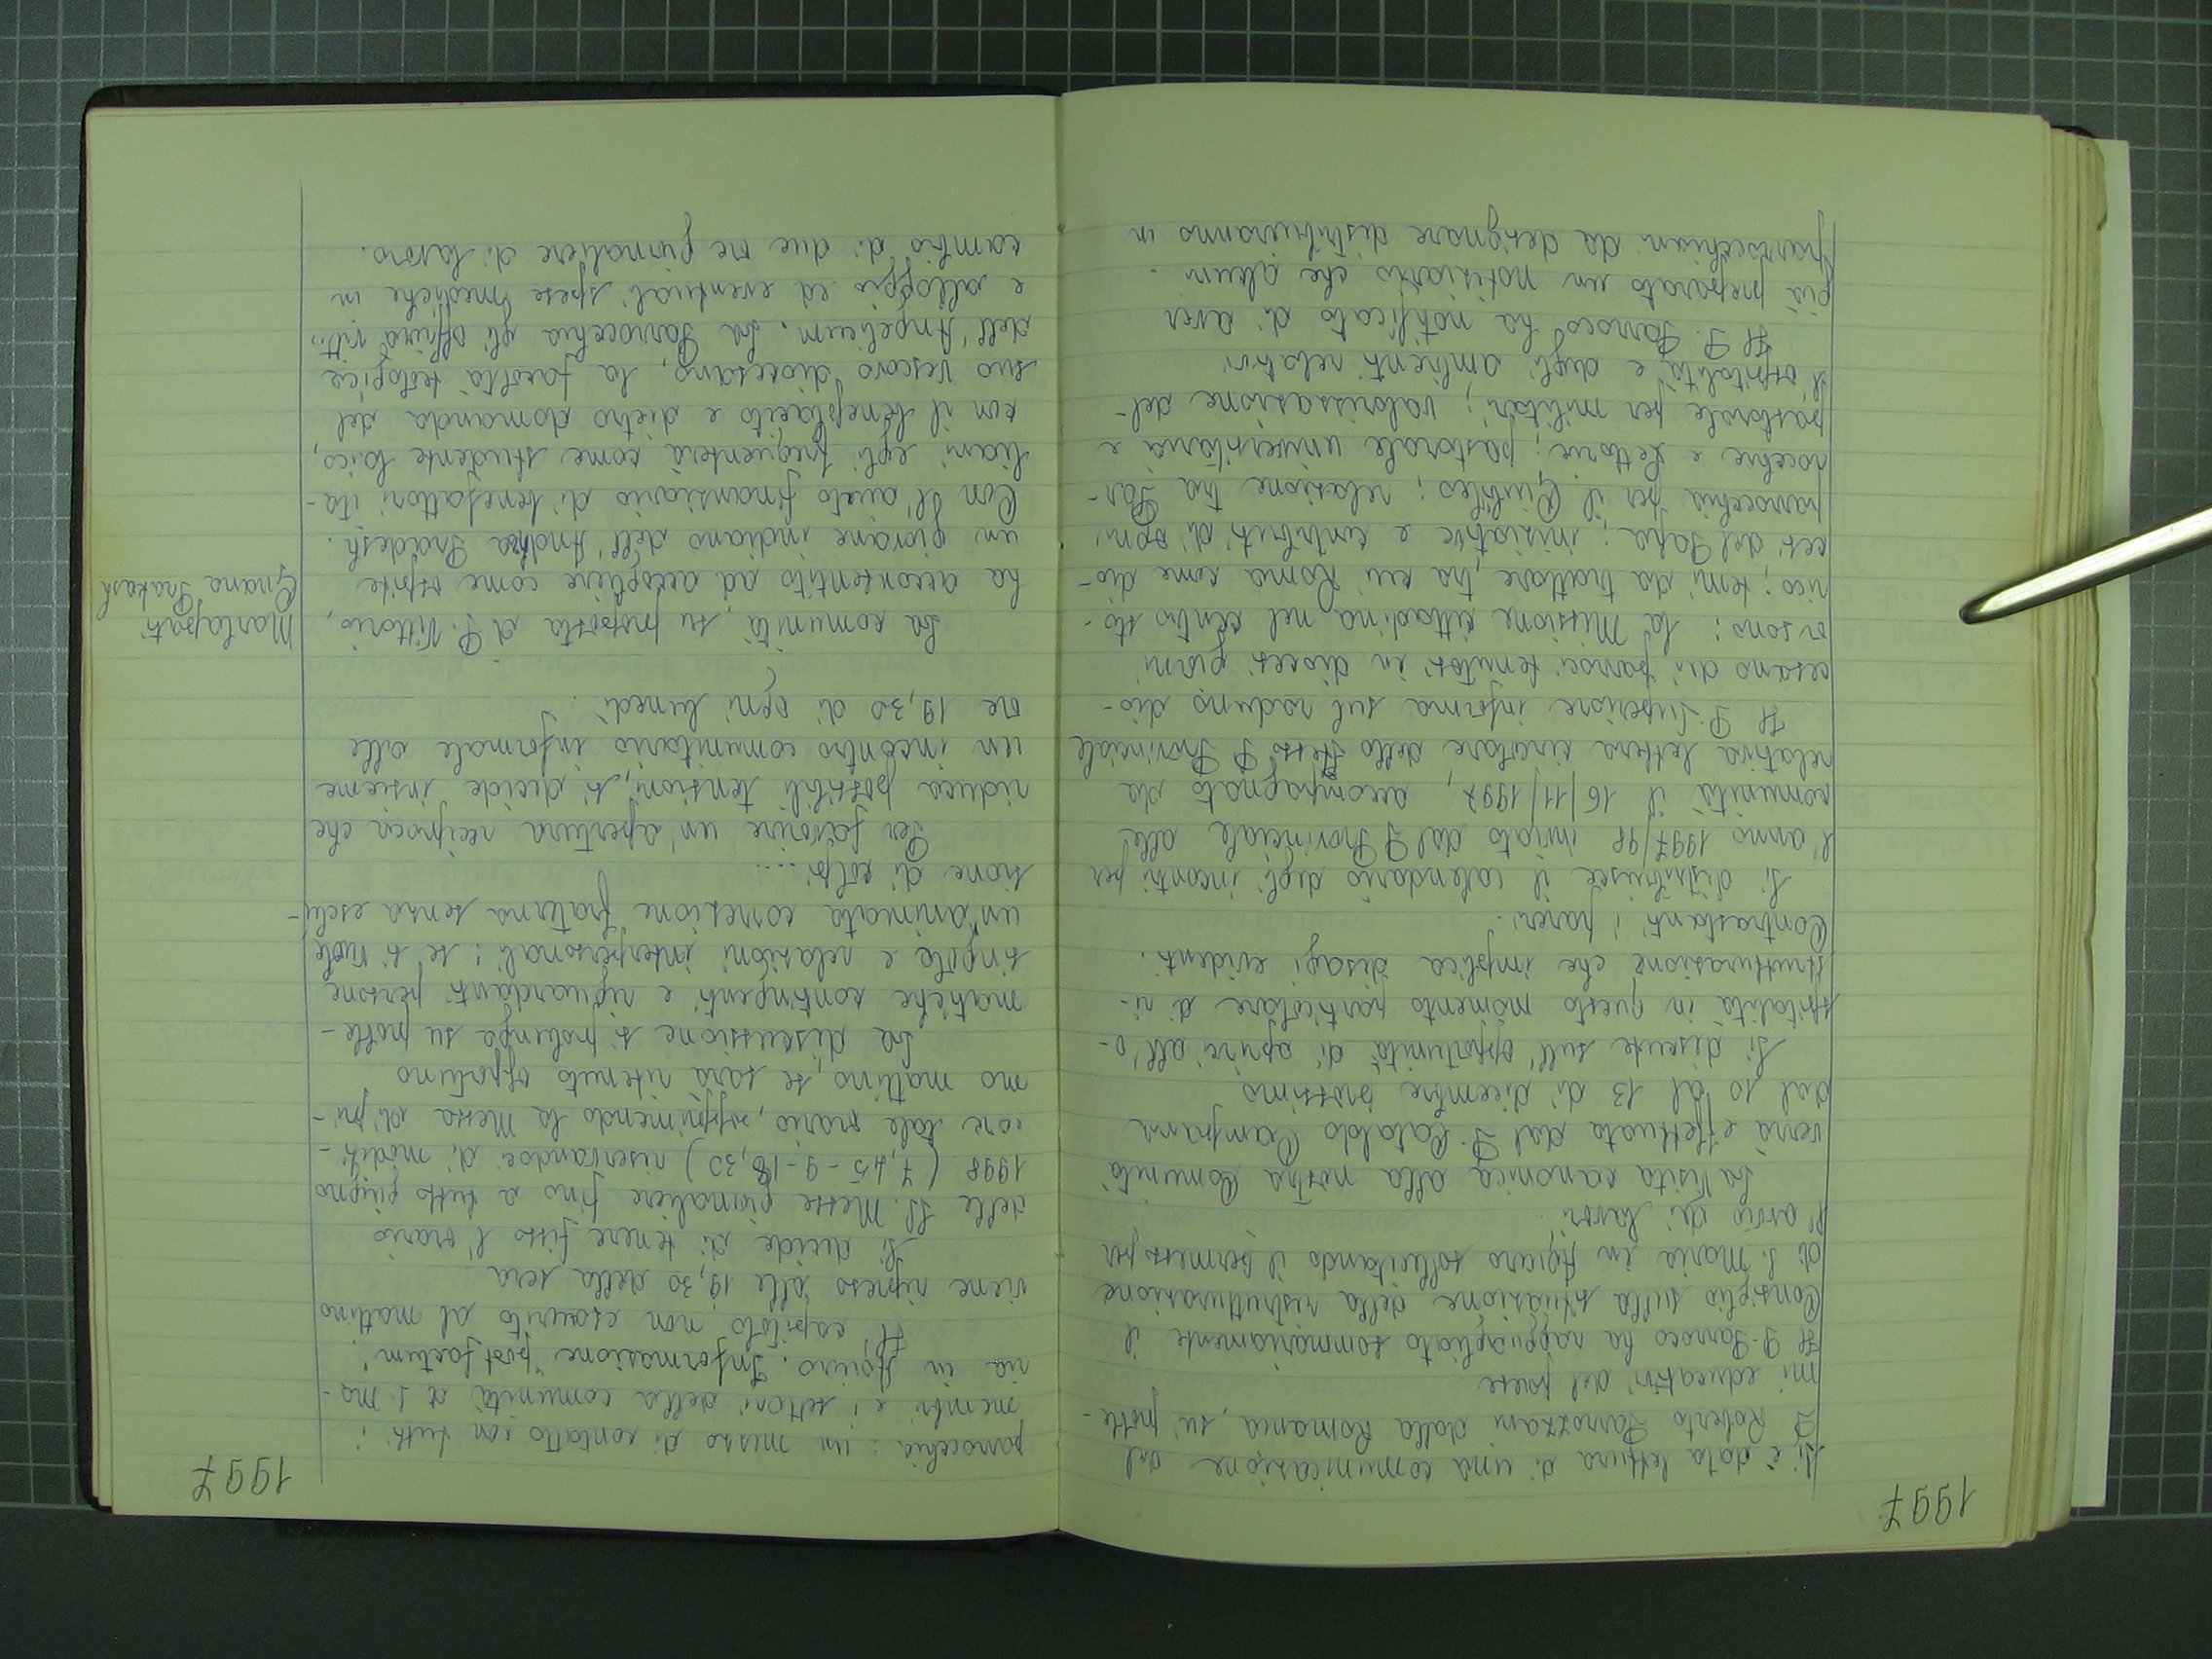 1997
Si è data lettura di una comunicazione del
P. Roberto Parrozzani dalla Romania, su proble-
mi educativi del paese
Il P. Parroco ha ragguagliato sommariamente il
Consiglio sulla situazione della ristrutturazione
di S. Maria in Aquiro sollecitando il permesso per
l'avvio dei lavori.
La Visita canonica alla nostra Comunità
verrà effettuata dal P. Cataldo Campana
dal 10 al 13 di dicembre prossimo
Si discute sull'opportunità di aprirci all'o-
spitalità in questo momento particolare di ri-
strutturazione che implica disagi evidenti.
Contrastanti i pareri.
Si distribuisce il calendario degli incontri per
l'anno 1997/98 inviato dal P. Provinciale alle
comunità il 16/11/1997, accompagnato da
relativa lettera circolare dello stesso P. Provinciale
Il P. Superiore informa sul raduno dio-
cesano dei parroci tenutosi in diocesi giorni
or sono: la Missione cittadina nel centro sto-
rico; temi da trattare, tra cui Roma come dio-
cesi del Papa; iniziative e contributi di ogni
parrocchia per il Giubileo; relazione tra Par-
rocchie e Rettorie; pastorale universitaria e
pastorale per militari; valorizzazione del-
l'ospitalità e degli ambienti relativi
Il P. Parroco ha notificato di aver
già preparato un notiziario che alcuni
parrocchiani da designare distribuiranno in
1997
parrocchia: un mezzo di contatto con tutti i
membri e i settori della comunità di S. Ma-
ria in Aquiro. Informazione "post factum".
Il capitolo non esaurito al mattino
viene ripreso alle 19,30 della sera
Si decide di tenere fisso l'orario
delle SS. Messe giornaliere fino a tutto giugno
1998 (7,45 - 9 - 18,30) riservandoci di modifi-
care tale orario, sopprimendo la Messa di pri-
mo mattino, se sarà ritenuto opportuno
La discussione si prolunga su proble-
matiche contingenti e riguardanti persone
singole e relazioni interpersonali: se si vuole
un'animata correzione fraterna senza esclu-
sione di colpi....
Per favorire un'apertura reciproca che
riduca possibili tensioni, si decide insieme
un incontro comunitario informale alle
ore 19,30 di ogni lunedì.
La comunità, su proposta di P. Vittorio,
ha acconsentito ad accogliere come ospite
un giovane indiano dell'Andhra Pradesh.
Con l'aiuto finanziario di benefattori ita-
liani egli frequenterà come studente laico,
con il beneplacito e dietro domanda del
suo vescovo diocesano, la facoltà teologica
dell'Angelicum. La Parrocchia gli offrirà vitto
e alloggio ed eventuali spese mediche in
cambio di due ore giornaliere di lavoro.
Marlapati
Gnana Prakash